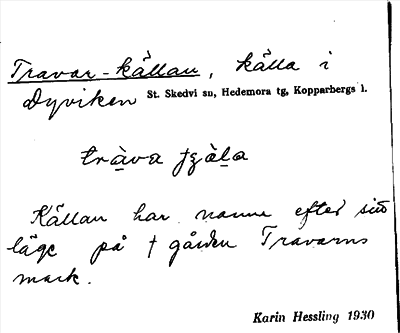 Travar-källan, källa i
Dyviken St. Skedvi sn, Hedemora tg, Kopparbergs l.
Källan har namn efter sitt
läge på † gården Travarns
mark.
Karin Hessling 1930